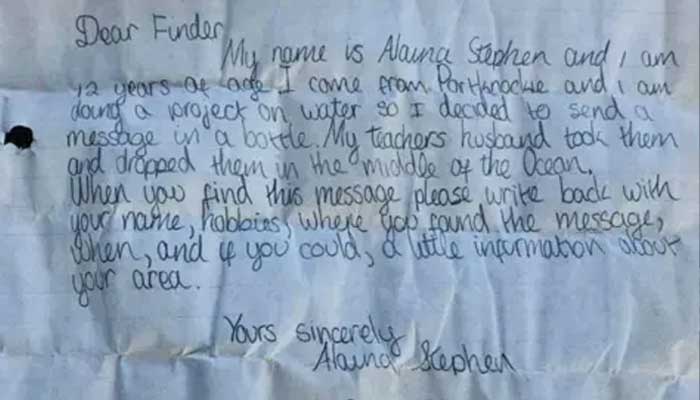 Dear Finder
My name is Alaina Stephen and I am
12 years of age I come from Portknockie and I am
doing a project on water so I decided to send a
message in a bottle. My teachers husband took them
and dropped them in the middle of the Ocean.
When you find this message please write back with
your name, hobbies, where you found the message,
when, and if you could, a little information about
your area.
Yours sincerely
Alaina Stephen